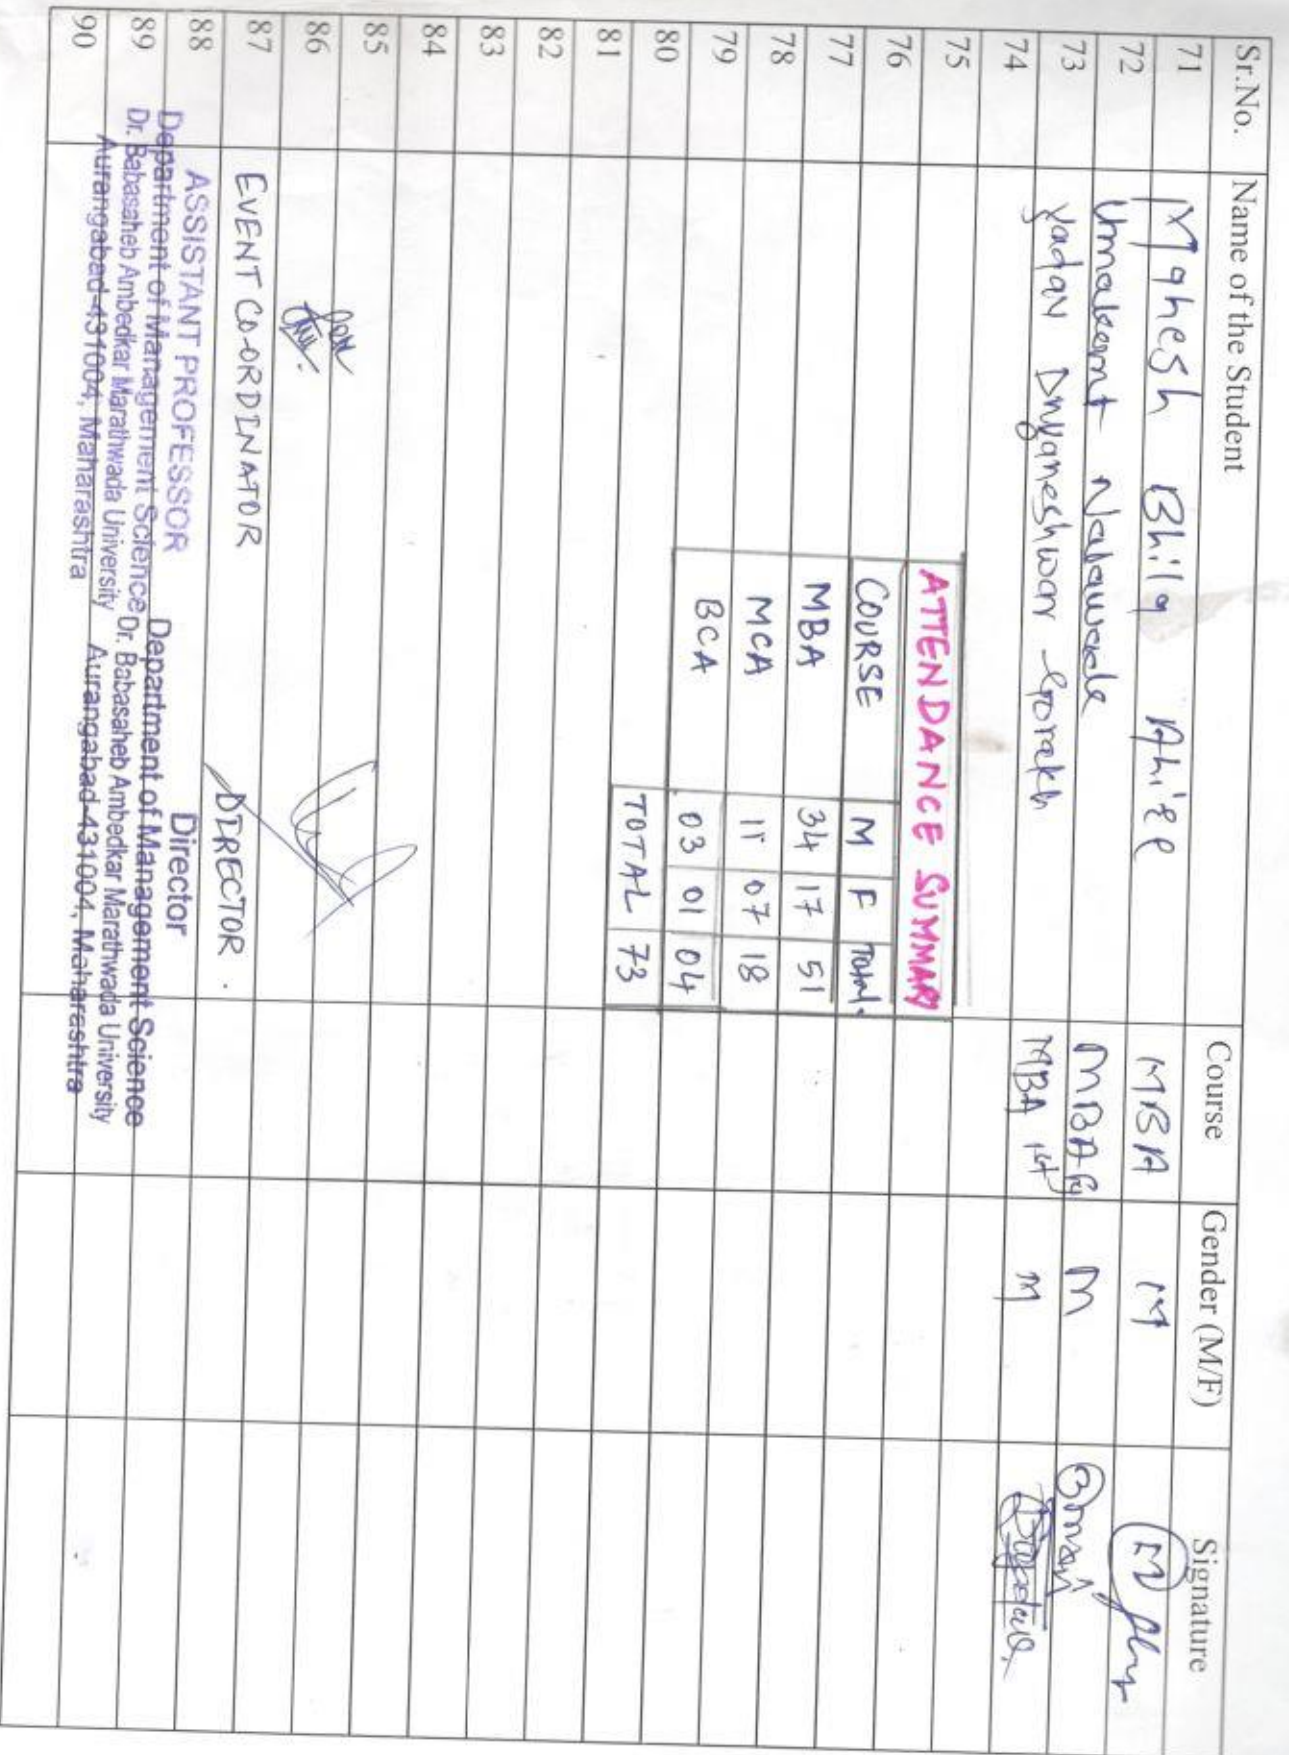 Sr.No. Name of the Student Course Gender (M/F) Signature
71 Mahesh Bhila Ahire MBA M
72 Umakant Nalawade MBA M
73 Yadav Dnyaneshwar Gorakh MBA 1st M
74
75
76
77
78
79
80
81
82
83
84
85
86
87
88
89
90
ATTENDANCE SUMMARY
COURSE M F Total.
MBA 34 17 51
MCA 11 07 18
BCA 03 01 04
TOTAL 73
EVENT CO-ORDINATOR
ASSISTANT PROFESSOR
Department of Management Science
Dr. Babasaheb Ambedkar Marathwada University
Aurangabad-431004, Maharashtra
DIRECTOR.
Director
Department of Management Science
Dr. Babasaheb Ambedkar Marathwada University
Aurangabad-431004, Maharashtra